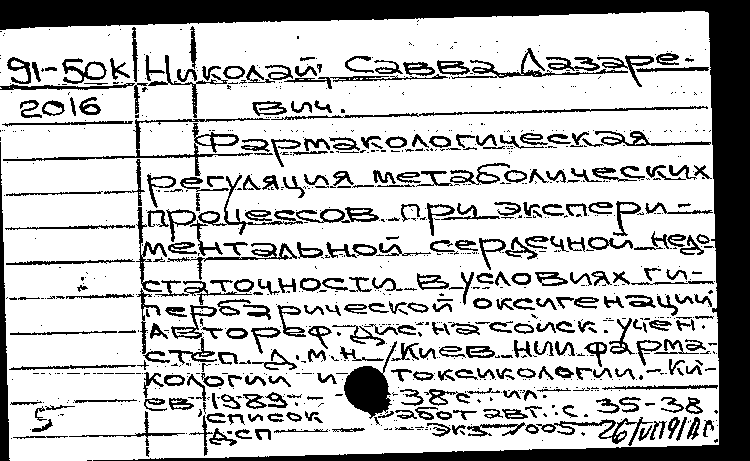 91-50К Николай, Савва Лазаре-
2016 вич.
Фармакологическая
регуляция метаболических
процессов при экспери-
ментальной сердечной недо-
статочности в условиях ги-
пербарической оксигенации.
Автореф. дис. на соиск. учен.
степ. д.м.н. /Киев. НИИ фарма-
кологии и токсикологии.- Ки-
ев, 1989.- 38 с. ил.
5 список работ авт.: с. 35-38.
дсп экз.